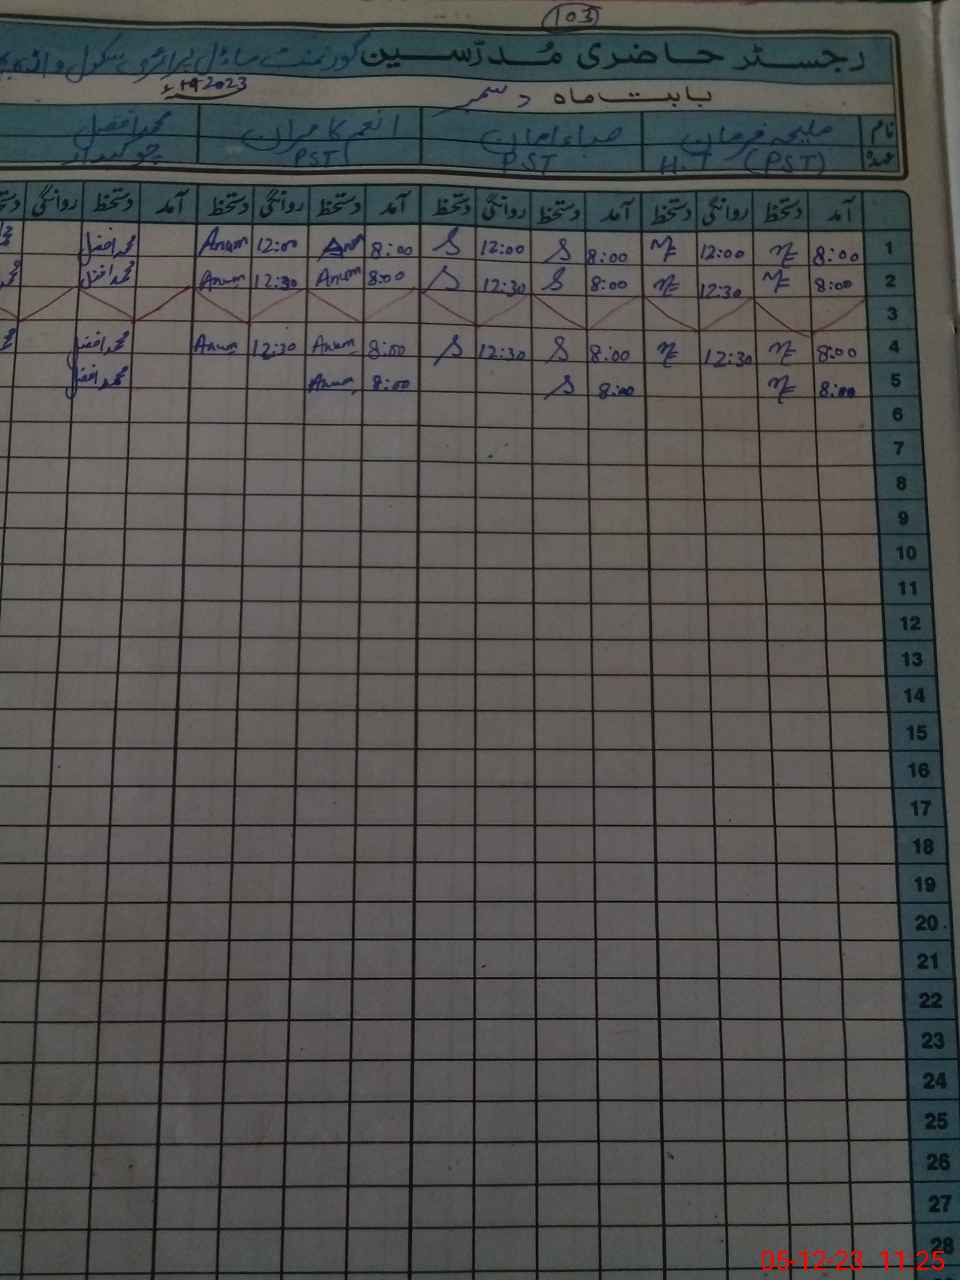 103
رجسٹر حاضری مُدرّسین گورنمنٹ ماڈل پرائمری سکول
بابت ماہ دسمبر 2023
نام ملیحہ فرمان صباء امان انعم کامران محمد افضل
عہدہ H.T (PST) PST PST چوکیدار
آمد دستخط روانگی دستخط آمد دستخط روانگی دستخط آمد دستخط روانگی دستخط آمد دستخط روانگی
1 8:00 12:00 8:00 S 12:00 S 8:00 Anum 12:00 Anum محمد افضل
2 8:00 12:30 8:00 S 12:30 S 8:00 Anum 12:30 Anum محمد افضل
3
4 8:00 12:30 8:00 S 12:30 S 8:00 Anum 12:30 Anum محمد افضل
5 8:00 8:00 S 8:00 Anum محمد افضل
6
7
8
9
10
11
12
13
14
15
16
17
18
19
20
21
22
23
24
25
26
27
28
05-12-23 11:25